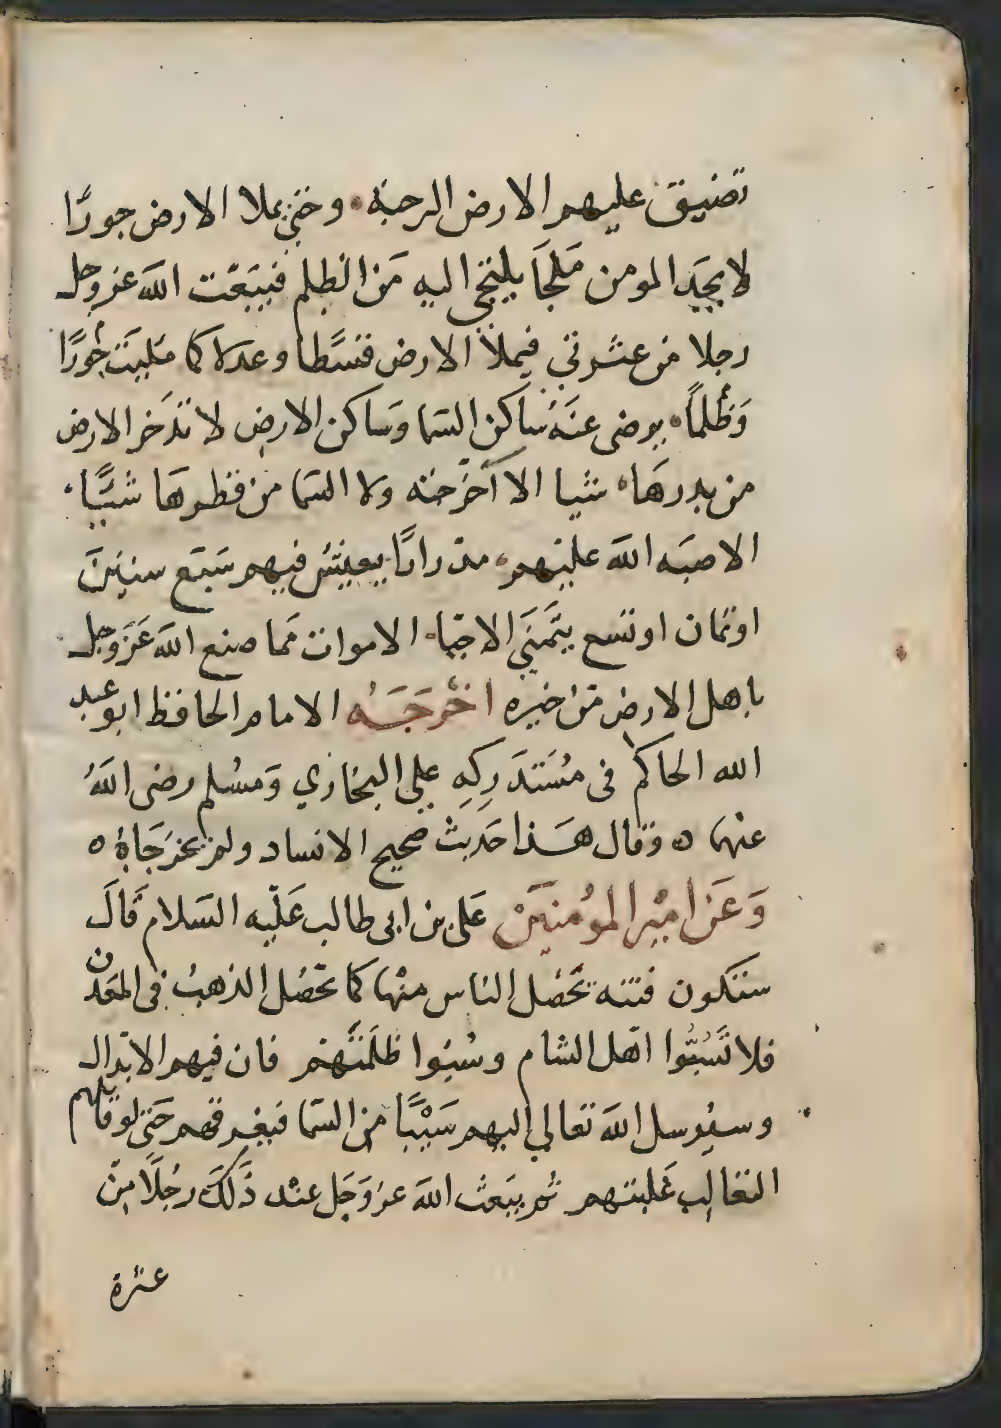 تضيق عليهم الارض الرحبة وحتى يملا الارض جورًا
لا يجد المومن ملجَا يلتجى اليه مَن الظلم فيبعَث اللهَ عز وجل
رجلا من عترتى فيملا الارض قسطا وعدلا كما ملئت جُورًا
وَظُلمًا يرضى عنَهُ ساكن السما وَساكن الارض لا تدَخر الارض
من بدرهَا شيا الا اَخرَجته ولا السما من قطرهَا شيًا
الا صبَه اللهَ عليهم مدرارًا يعيش فيهم سَبَع سنينَ
او ثمان او تسع يتَمنَى الاحيا الاموات ممَا صنع اللهَ عَزَ وجل
باهل الارض مَن خيره اخرَجَهُ الامام الحافظ ابو عبد
الله الحاكم فى مسُتَدَرِكهِ على البخاري وَمسُلم رضى اللهُ
عنهما ه وقال هَذا حَديث صحيح الاسناد ولم يخرَجَاهُ ه
وَعَن امير المؤمنينَ على بن ابى طالب عَليه السَلام قَالَ
ستكون فتنه تحَصُل الناس منها كما تحَصُل الذهبُ فى المعَدن
فلا تَسُبُّوا اهَل الشام وسُبوا ظلَمَتَهم فان فيهم الابدال
وسيُرسل اللهَ تعالي اليهم سَيْبًا من السَما فيغرقهم حَتى لو قاتلهم
الثعالب غَلبتهم ثم يبَعث اللهَ عز وَجَل عنْد ذَلَكَ رجُلًا مِنَ
عترة